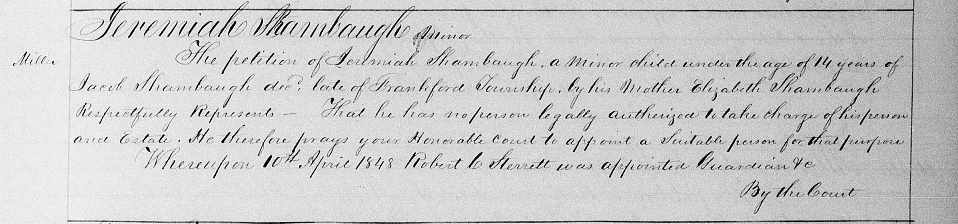 Jeremiah Shambaugh a Minor
Mill.
The petition of Jeremiah Shambaugh, a Minor child under the age of 14 years of
Jacob Shambaugh decd. late of Frankford Township, by his Mother Elizabeth Shambaugh
Respectfully Represents — That he has no person legally authorized to take charge of his person
and Estate. He therefore prays your Honorable court to appoint a Suitable person for that purpose
Whereupon 10th April 1848 Robert C Sterrett was appointed Guardian &c
By the Court